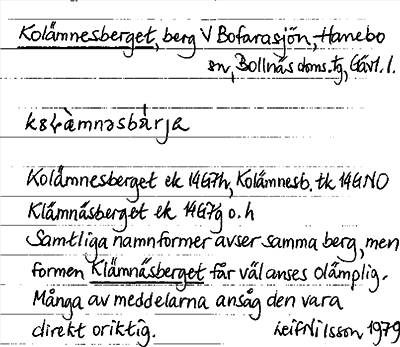 Kolämnesberget, berg V Bofarasjön, Hanebo
sn, Bollnäs doms. tg, Gävl. l.
Kolämnesberget ek 14G7h, Kolämnesb. tk 14GNO
Klämnäsberget ek 14G7g o. h
Samtliga namnformer avser samma berg, men
formen Klämnäsberget får väl anses olämplig.
Många av meddelarna ansåg den vara
direkt oriktig. Leif Nilsson 1979